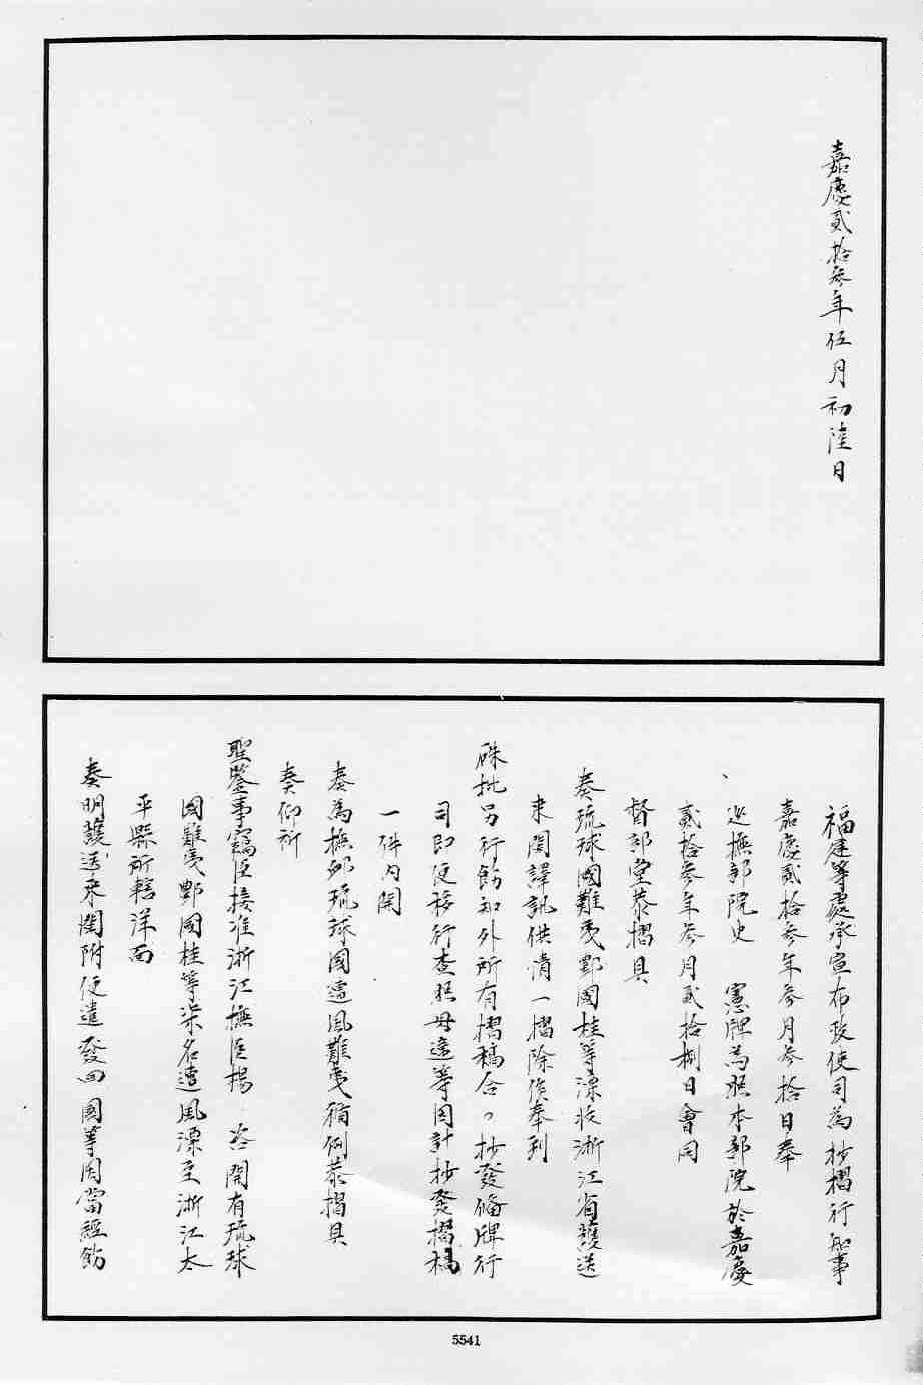 嘉慶貳拾參年伍月初陸日
福建等處承宣布政使司為抄摺行知事
嘉慶貳拾參年參月參拾日奉
巡撫部院史　憲牌為照本部院於嘉慶
貳拾參年參月貳拾捌日會同
督部堂恭摺具
奏琉球國難夷鄷國桂等漂收浙江省護送
來閩譯訊供情一摺除俟奉到
硃批另行飭知外所有摺稿合々抄發備牌行
司即便移行查照毋違等因計抄發摺稿
一件內開
奏為撫卹琉球國遭風難夷循例恭摺具
奏仰祈
聖鑒事竊臣接准浙江撫臣楊　咨開有琉球
國難夷鄷國桂等柒名遭風漂至浙江太
平縣所轄洋面
奏明護送來閩附便遣發回國等因當經飭
5541